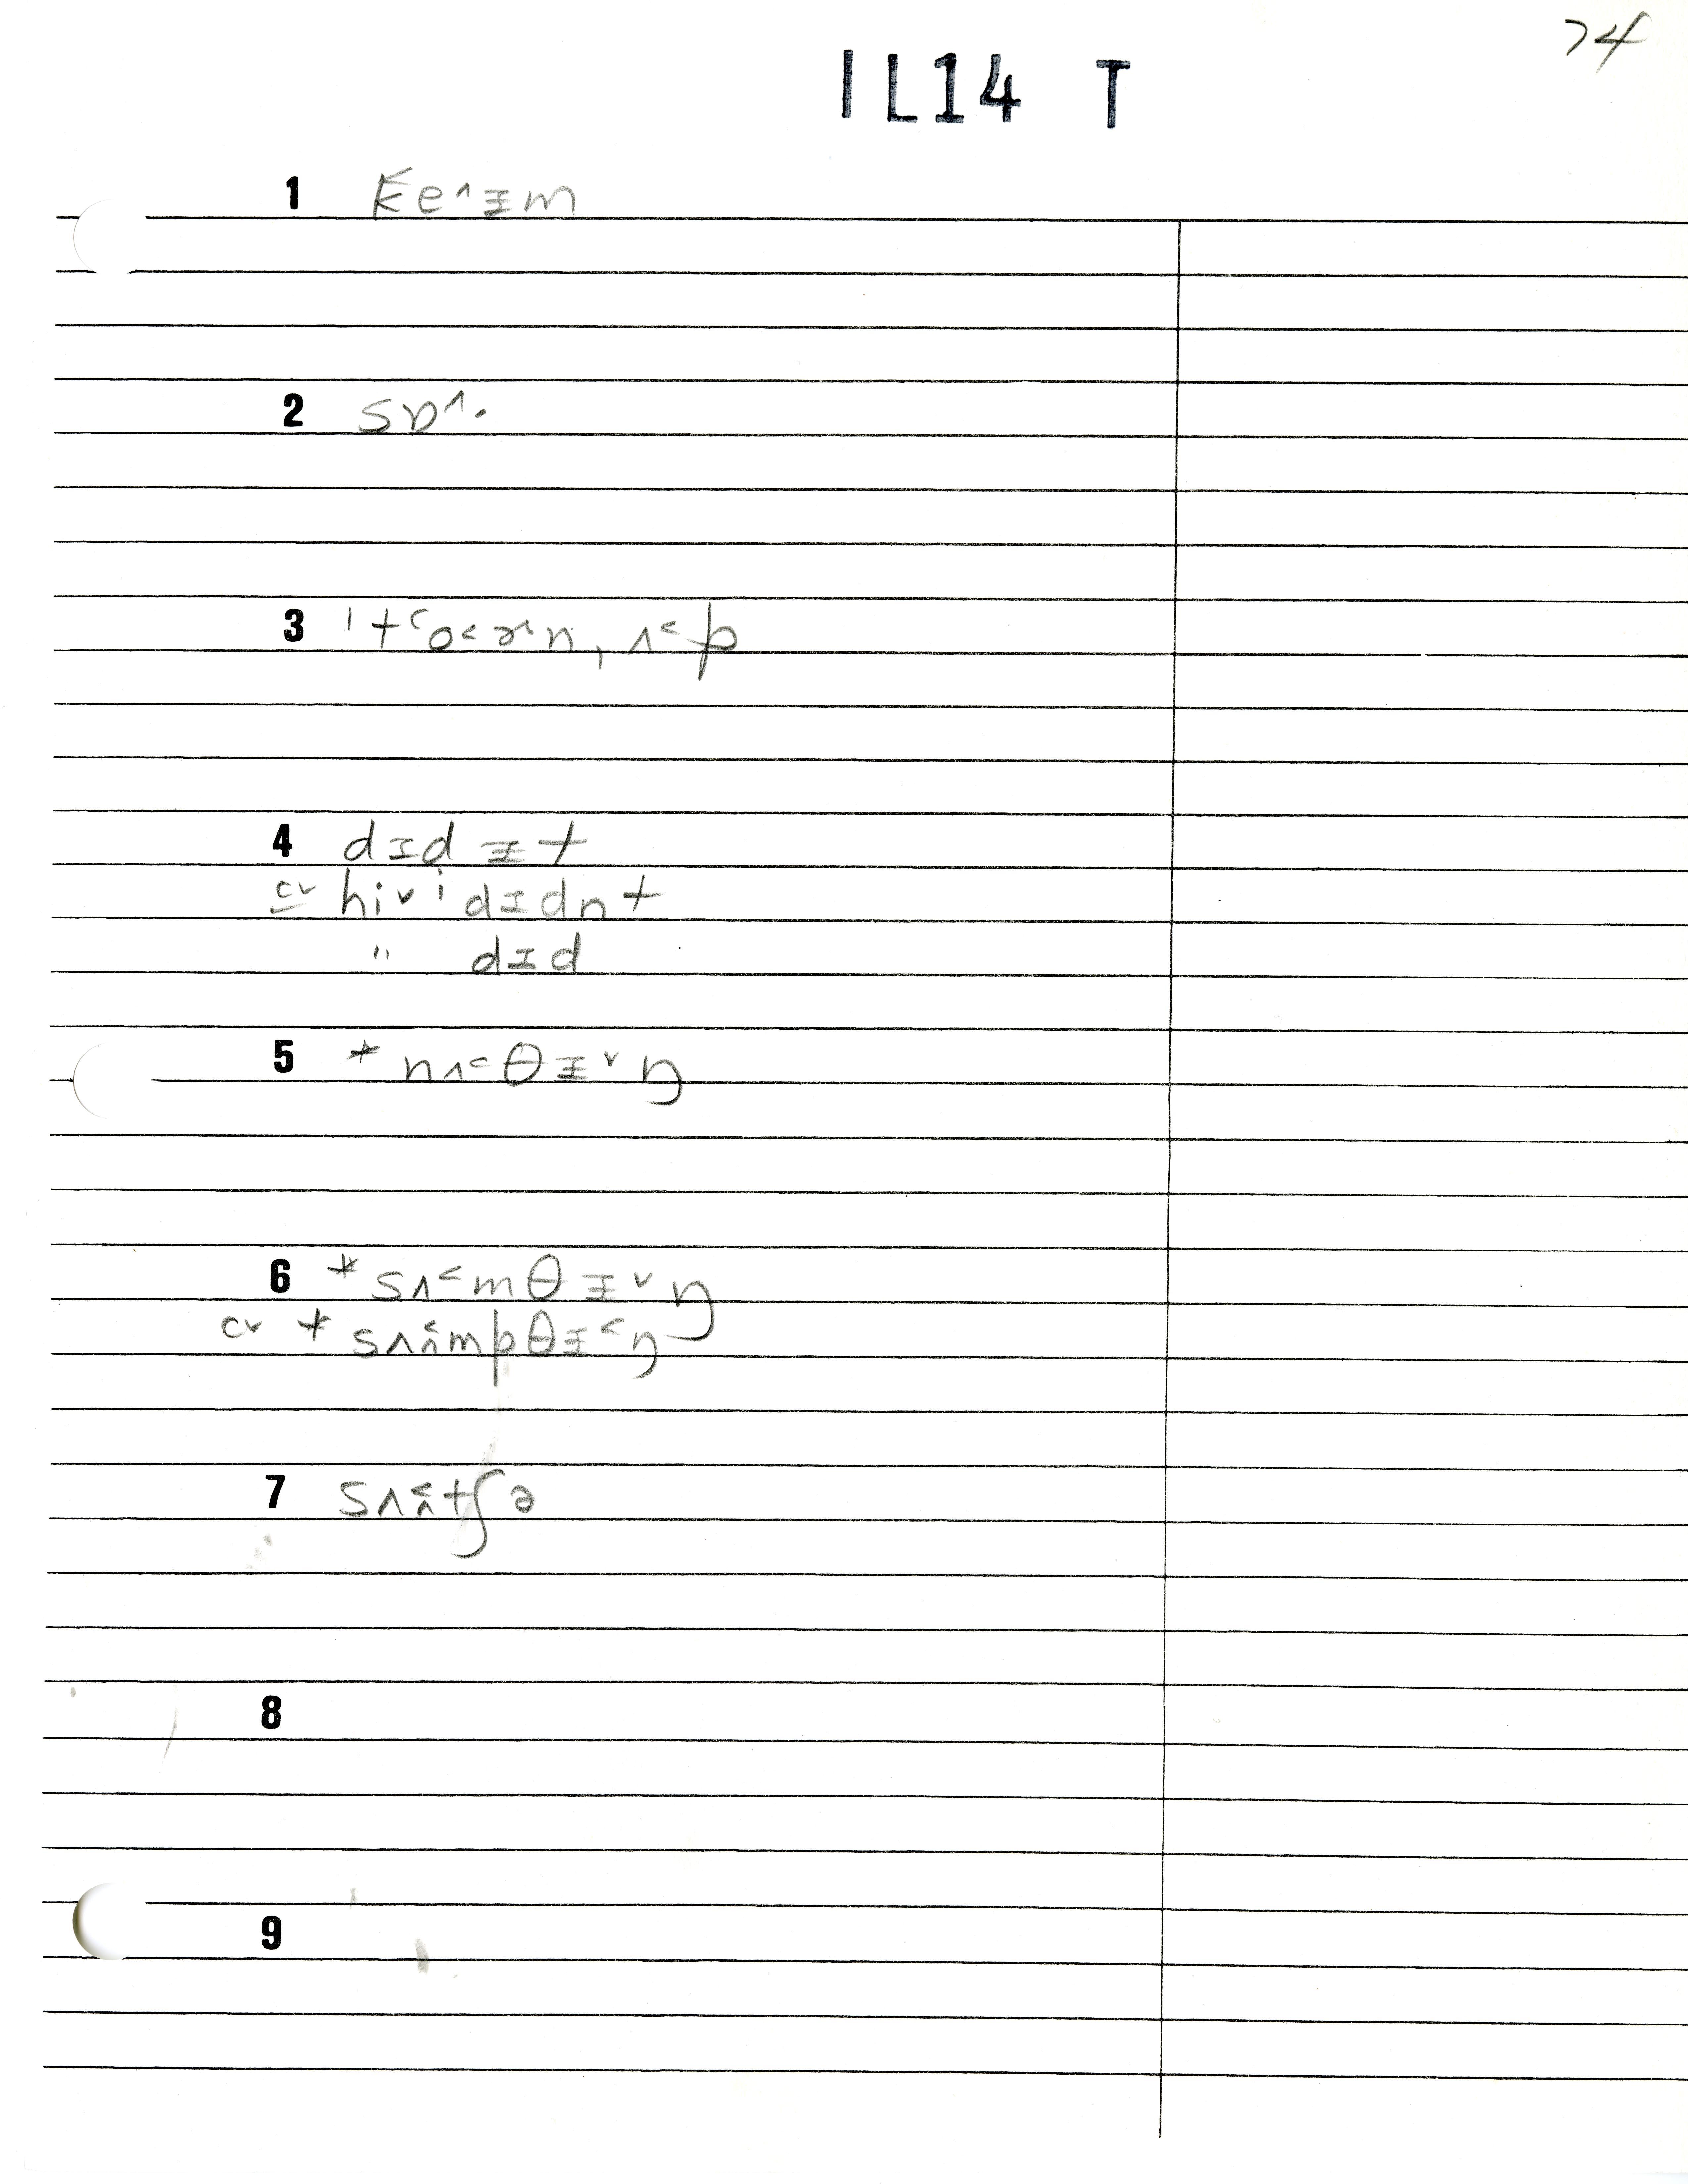 74
IL14 T
1 ḱe˄ɪm
2 sɒ˄·
3 ˈtʿo˂ɚn, ʌ˂p
4 dɪd ɪt
cv hi˅i dɪdnt
" dɪd
5 * nʌ˂θɪ˅ŋ
6 * sʌ˂mθɪ˅ŋ
cv * sʌ˂̭mpθɪ˂ŋ
7 sʌ˂̭tʃə
8
9